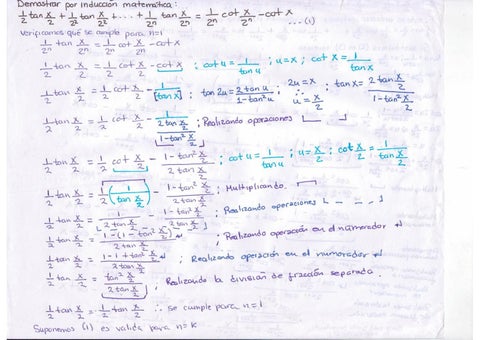 Demostrar por inducción matemática:
1/2 tan x/2 + 1/2² tan x/2² + ... + 1/2ⁿ tan x/2ⁿ = 1/2ⁿ cot x/2ⁿ - cot x ... (1)
Verificamos qué se cumple para n=1
1/2ⁿ tan x/2ⁿ = 1/2ⁿ cot x/2ⁿ - cot x
1/2 tan x/2 = 1/2 cot x/2 - cot x ; cot u = 1/tan u ; u = x ; cot x = 1/tan x
1/2 tan x/2 = 1/2 cot x/2 - 1/[tan x] ; tan 2u = 2 tan u/1-tan² u ; 2u = x ∴ u = x/2 ; tan x = 2 tan x/2/1-tan² x/2
1/2 tan x/2 = 1/2 cot x/2 - 1/2 tan x/2/1-tan² x/2 ; Realizando operaciones
1/2 tan x/2 = 1/2 cot x/2 - 1-tan² x/2/2 tan x/2 ; cot u = 1/tan u ; u = x/2 ; cot x/2 = 1/tan x/2
1/2 tan x/2 = 1/2 (1/tan x/2) - 1-tan² x/2/2 tan x/2 ; Multiplicando
1/2 tan x/2 = 1/2 tan x/2 - 1-tan² x/2/2 tan x/2 ; Realizando operaciones
1/2 tan x/2 = 1-(1-tan² x/2)/2 tan x/2 ; Realizando operación en el numerador
1/2 tan x/2 = 1-1+tan² x/2/2 tan x/2 ; Realizando operación en el numerador
1/2 tan x/2 = tan² x/2/2 tan x/2 ; Realizando la división de fracción separada.
1/2 tan x/2 = 1/2 tan x/2 ∴ se cumple para n=1
Suponemos (1) es valida para n=K